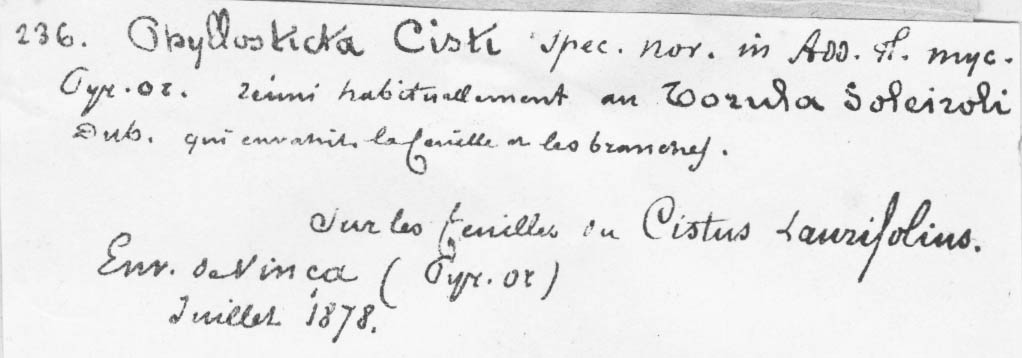 236. Phyllosticta Cisti spec. nov. in Add. fl. myc.
Pyr. or. réuni habituellement au Torula Soleiroli
Dub. qui envahit la feuille et les branches.
Sur les feuilles du Cistus Laurifolius.
Env. de Vinça (Pyr. or)
Juillet 1878.